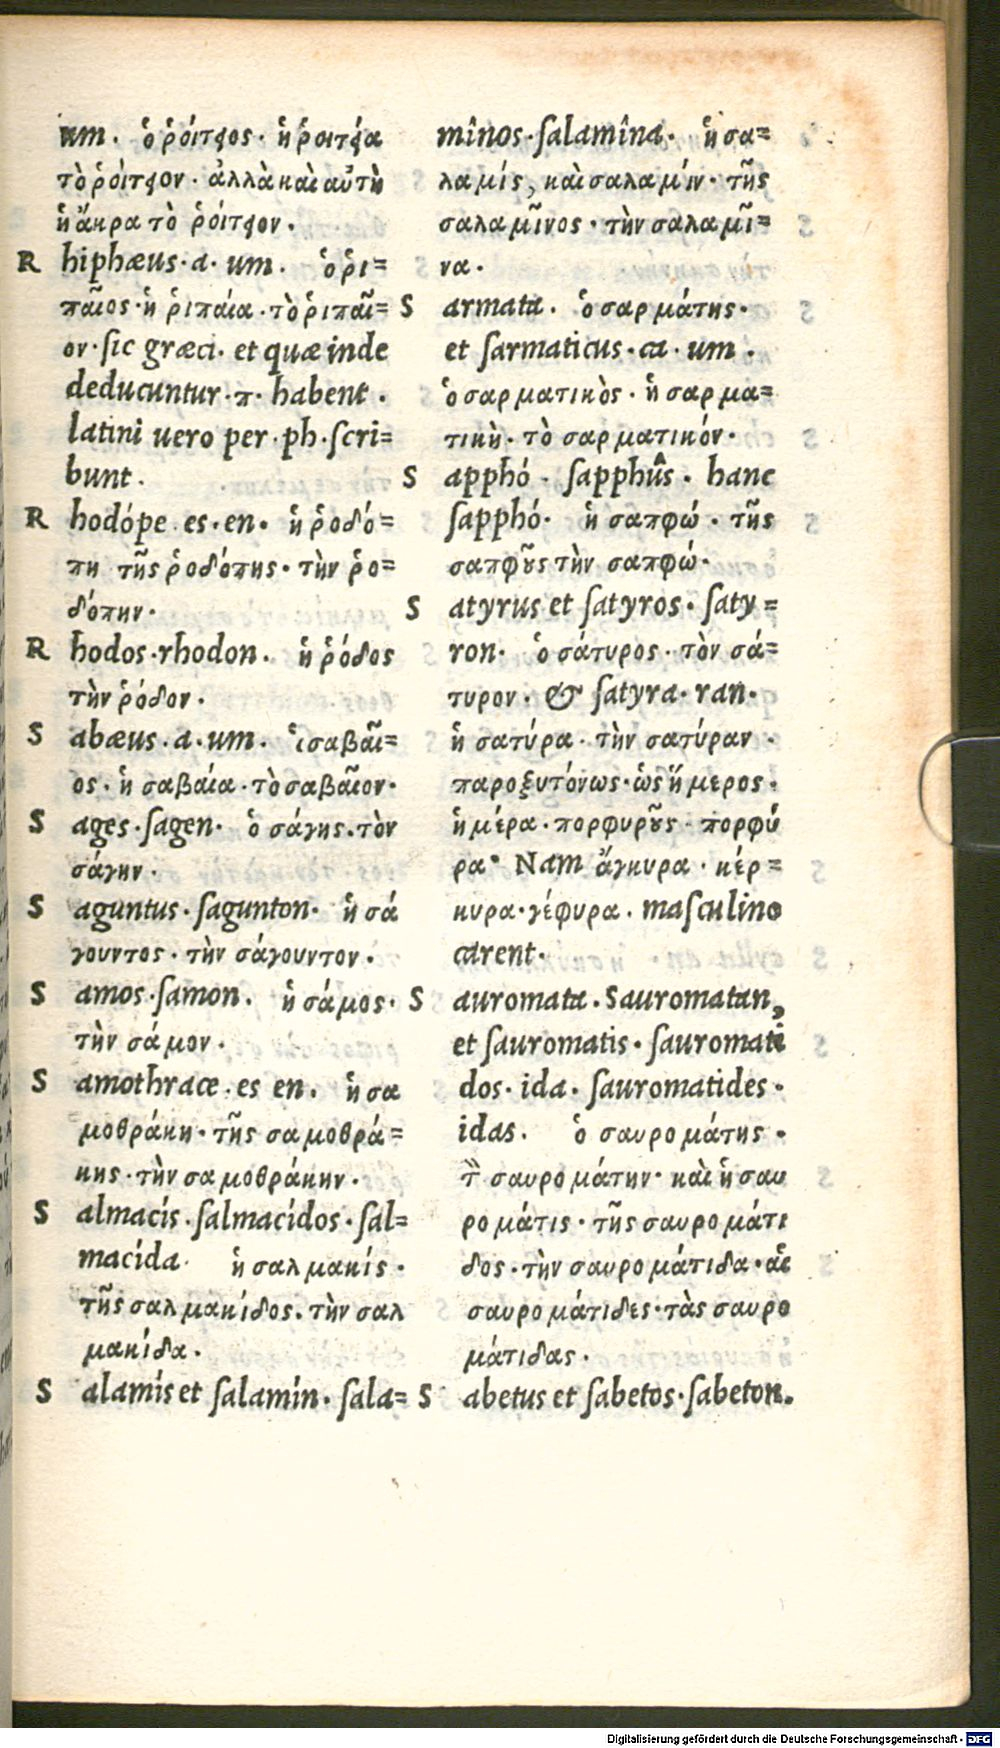 um. ὁ ῥόιτϙος. ἡ ῥοιτϙα
τὸ ῥόιτϙον. ἀλλὰ καὶ αὐτὴ
ἡ ἄκρα τὸ ῥόιτϙον.
R hiphæus. a. um. ὁ ῥι=
παῖος. ἡ ῥιπάια. τὸ ῥιπαῖ=
ον. ſic græci. et quæ inde
deducuntur. π. habent.
latini uero per. ph. ſcri=
bunt.
R hodópe es. en. ἡ ῥοδό=
πη τῆς ῥοδόπης. τὴν ῥο=
δόπην.
R hodos. rhodon. ἡ ῥόδος
τὴν ῥόδον.
S abæus. a. um. ὁ σαβαῖ=
ος. ἡ σαβάια. τὸ σαβαῖον.
S ages. ſagen. ὁ σάγης. τὸν
σάγην.
S aguntus. ſagunton. ἡ σά
γουντος. τὴν σάγουντον.
S amos. ſamon. ἡ σάμος.
τὴν σάμον.
S amothrace. es en. ἡ σα
μοθράκη. τῆς σαμοθρά=
κης. τὴν σαμοθράκην.
S almacís. ſalmacídos. ſal=
macída. ἡ σαλμακίς.
τῆς σαλμακίδος. τὴν σαλ
μακίδα.
S alamís et ſalamín. ſala=
mînos. ſalamîna. ἡ σα=
λαμίς, καὶ σαλαμίν. τῆς
σαλαμῖνος. τὴν σαλαμῖ=
να.
S armata. ὁ σαρμάτης.
et ſarmaticus. ca. um.
ὁ σαρματικὸς. ἡ σαρμα=
τικὴ. τὸ σαρματικόν.
S apphó. ſapphûs. hanc
ſapphó. ἡ σαπφώ. τῆς
σαπφοῦς τὴν σαπφώ.
S atyrus et ſatyros. ſaty=
ron. ὁ σάτυρος. τὸν σά=
τυρον. & ſatyra. ran.
ἡ σατύρα. τὴν σατύραν.
παροξυτόνως. ὡς ἥμερος.
ἡμέρα. πορφυροῦς. πορφύ
ρα. Nam ἄγκυρα. κέρ=
κυρα. γέφυρα. maſculino
carent.
S auromata. Sauromatan,
et ſauromatis. ſauromati
dos. ida. ſauromatides.
idas. ὁ σαυρομάτης.
τ̀ σαυρομάτην. καὶ ἡ σαυ
ρομάτις. τῆς σαυρομάτι
δος. τὴν σαυρομάτιδα. αἱ
σαυρομάτιδες. τὰς σαυρο
μάτιδας.
S abetus et ſabetos. ſabeton.
Digitalisierung gefördert durch die Deutsche Forschungsgemeinschaft - DFG